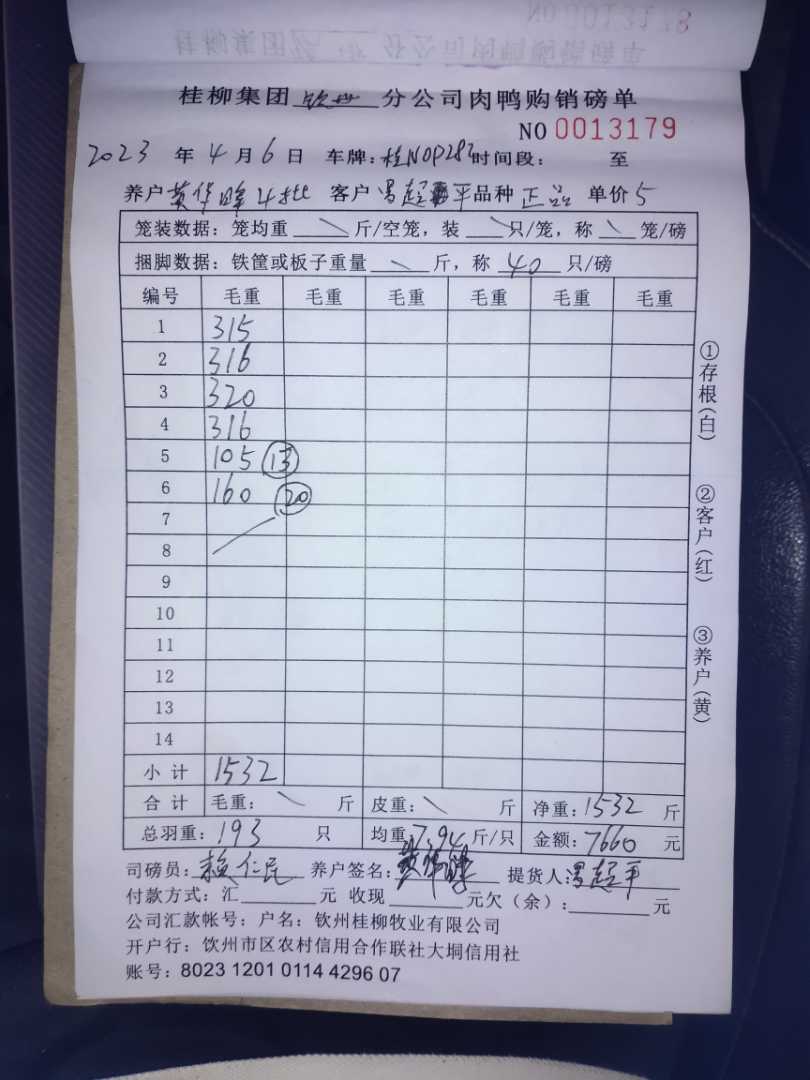 NO 0013179
桂柳集团 钦州 分公司肉鸭购销磅单
NO 0013179
2023 年 4 月 6 日 车牌: 桂N0P282 时间段: 至
养户 黄华峰 4批 客户 冯超平 品种 正品 单价 5
笼装数据: 笼均重 \ 斤/空笼, 装 \ 只/笼, 称 \ 笼/磅
捆脚数据: 铁筐或板子重量 \ 斤, 称 40 只/磅
编号 毛重 毛重 毛重 毛重 毛重 毛重
1 315
2 316
3 320
4 316
5 105 13
6 160 20
7
8
9
10
11
12
13
14
小计 1532
合计 毛重: \ 斤 皮重: \ 斤 净重: 1532 斤
总羽重: 193 只 均重: 7.94 斤/只 金额: 7660 元
司磅员: 赖仁民 养户签名: 黄华峰 提货人: 冯超平
付款方式: 汇 元 收现 元欠(余): 元
公司汇款帐号: 户名: 钦州桂柳牧业有限公司
开户行: 钦州市区农村信用合作联社大垌信用社
账号: 8023 1201 0114 4296 07
①存根(白)
②客户(红)
③养户(黄)